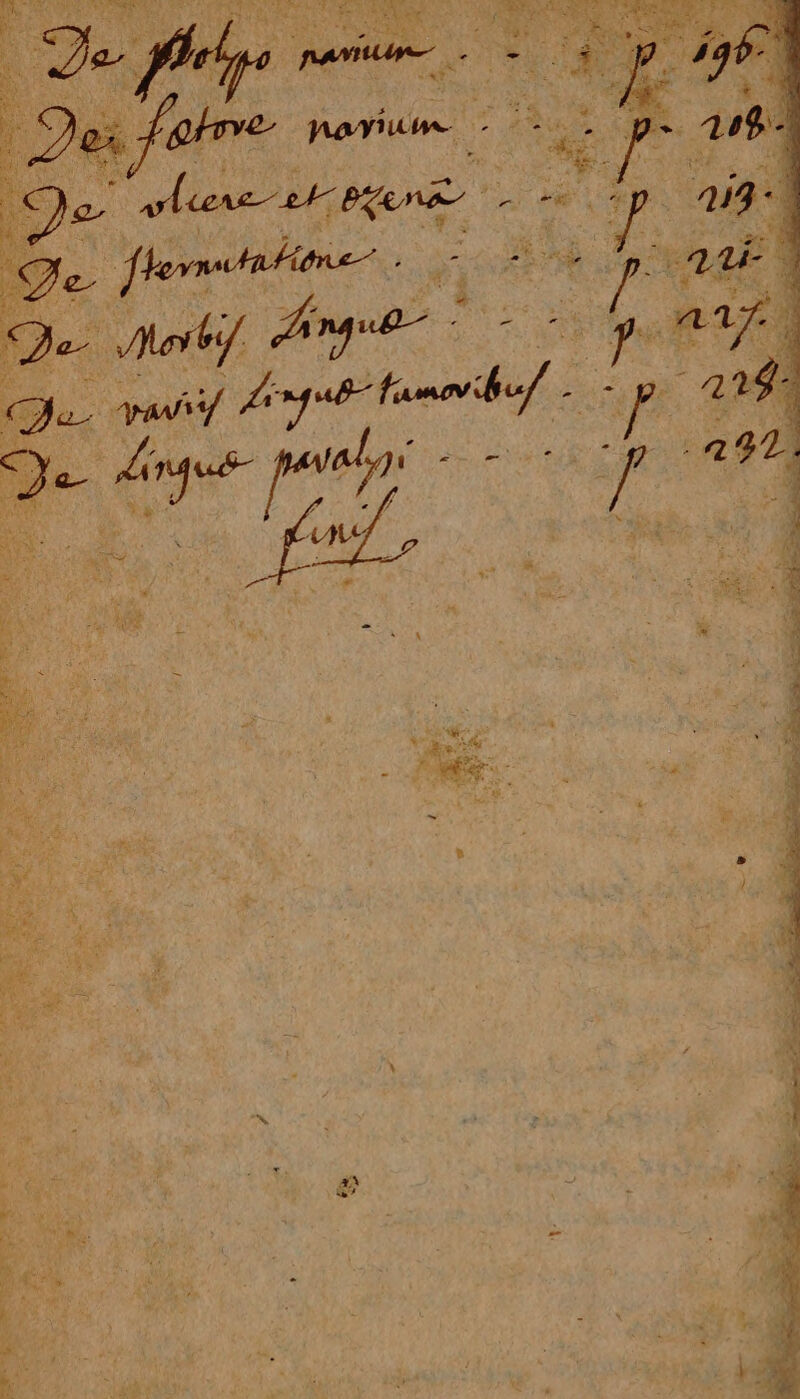 De polypo narium - - - p. 196.
De fœtore narium - - - p. 208.
De vlcere et ozena - - p. 213.
De sternutatione - - - p. 221.
De Morbis Linguæ - - - p. 227.
De variis Linguæ tumoribus - - p. 229.
De Linguæ paralysi - - - p. 232.
finis.